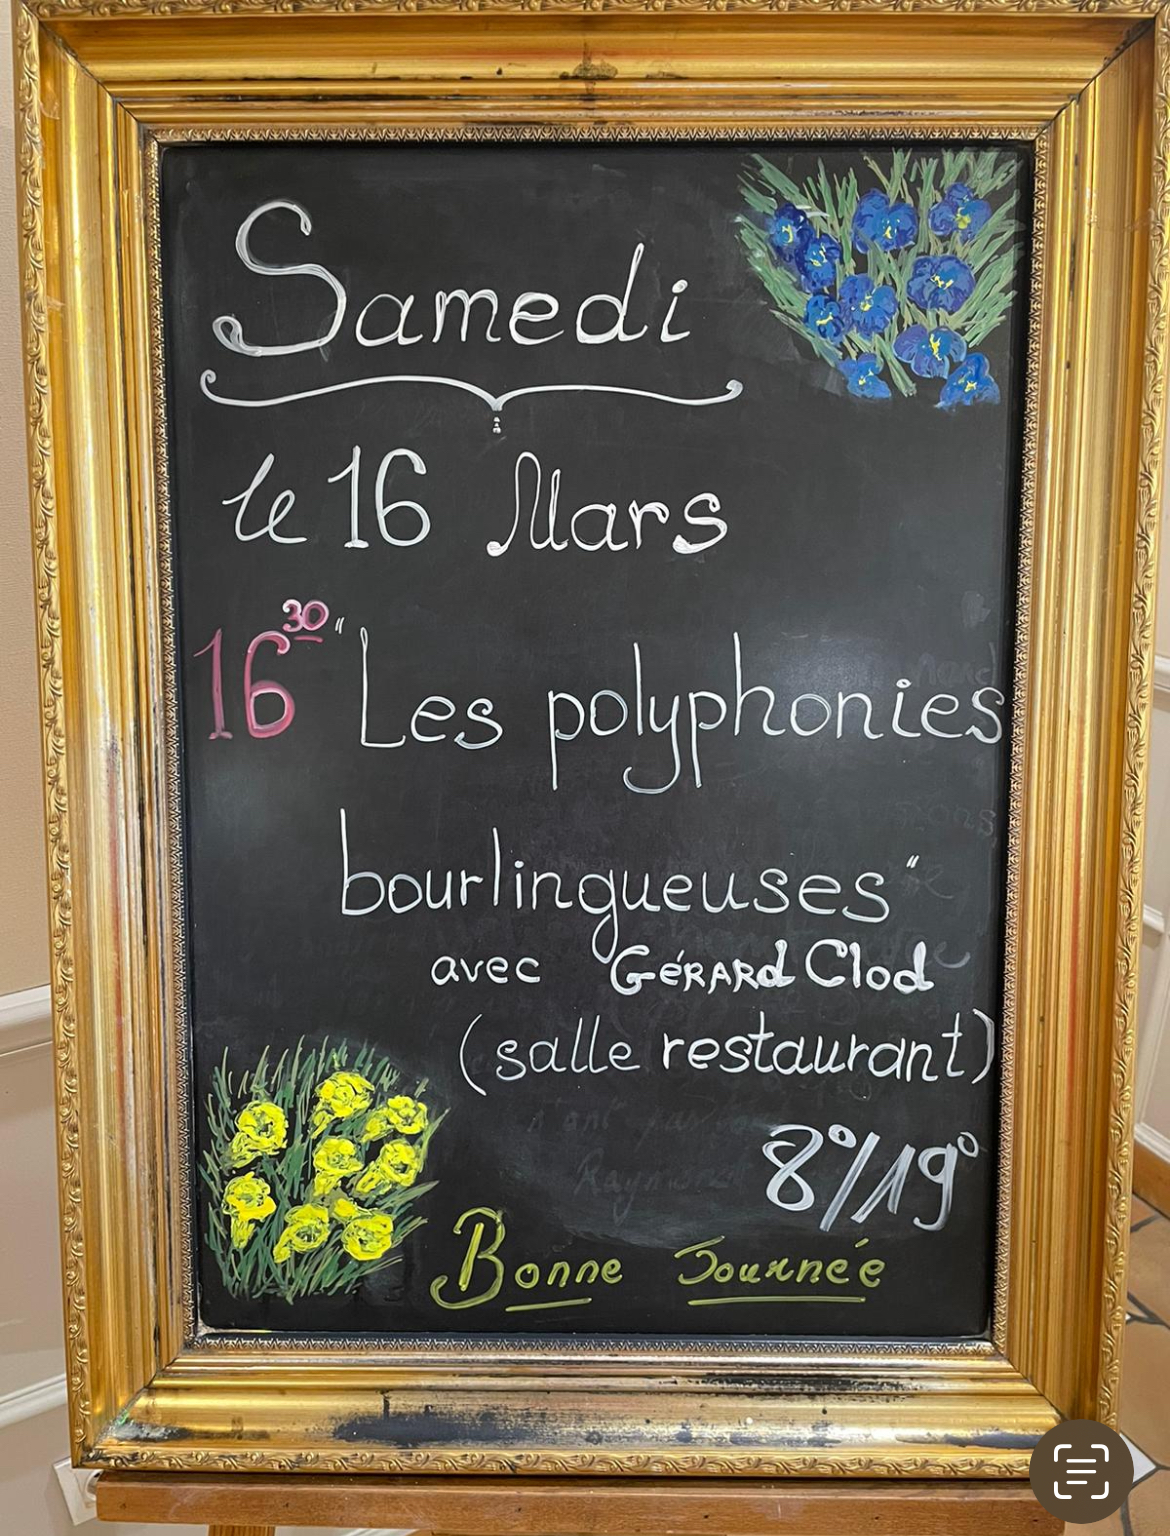 Samedi
le 16 Mars
16 30 "Les polyphonies
bourlingueuses"
avec GÉRARd Clod
(salle restaurant)
8°/19°
Bonne Journée